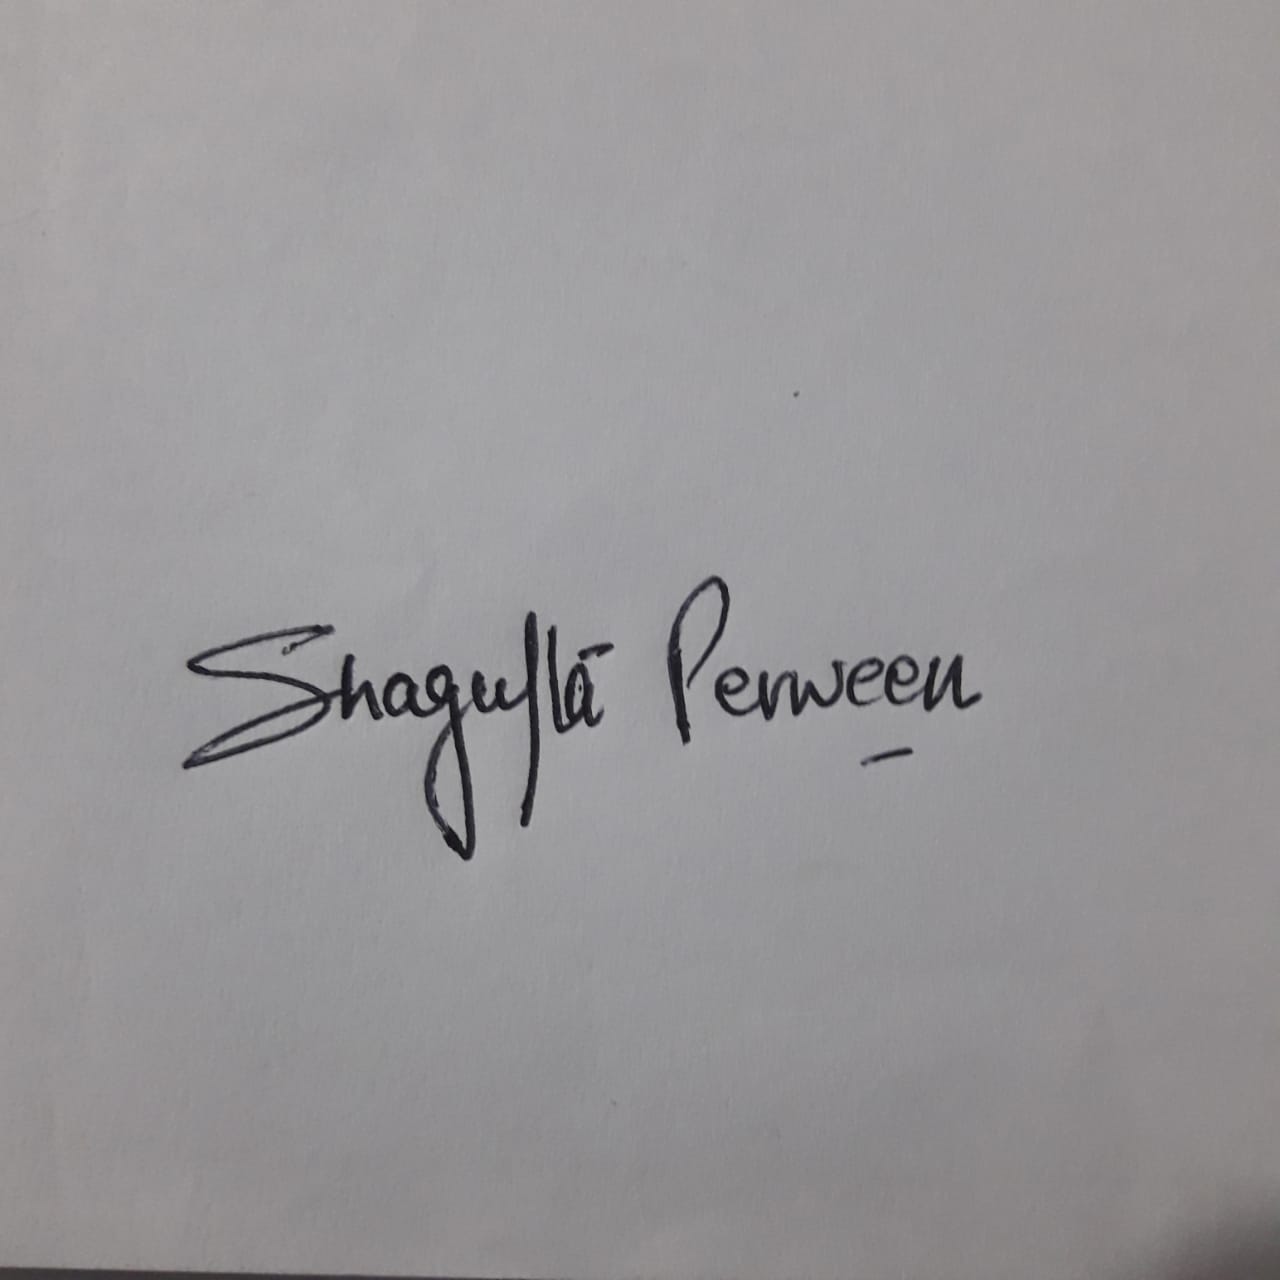 Shagufta Perween